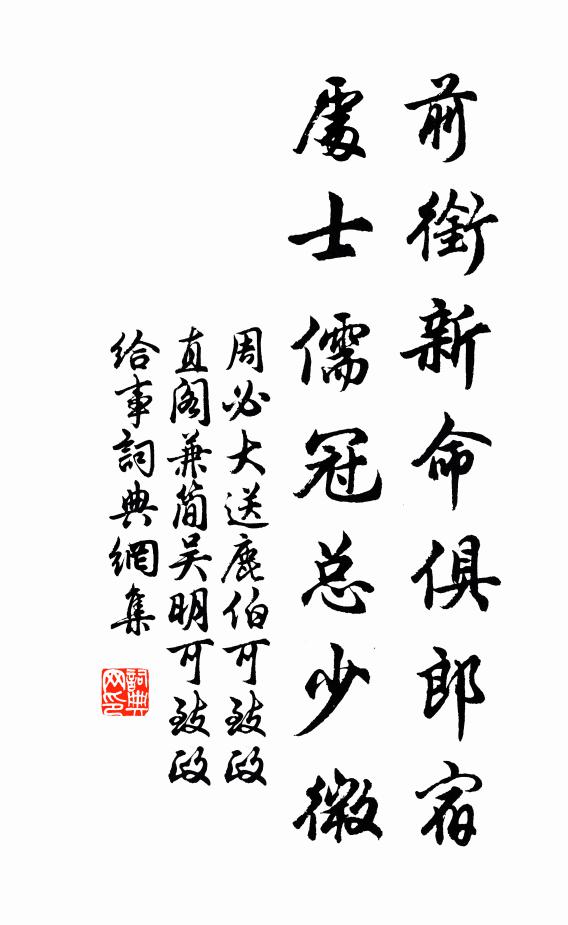 前銜新命俱郎宿
處士儒冠总少微
周必大送鹿伯可致政
直阁兼简吴明可致政
给事詞典網集
詞典
网印